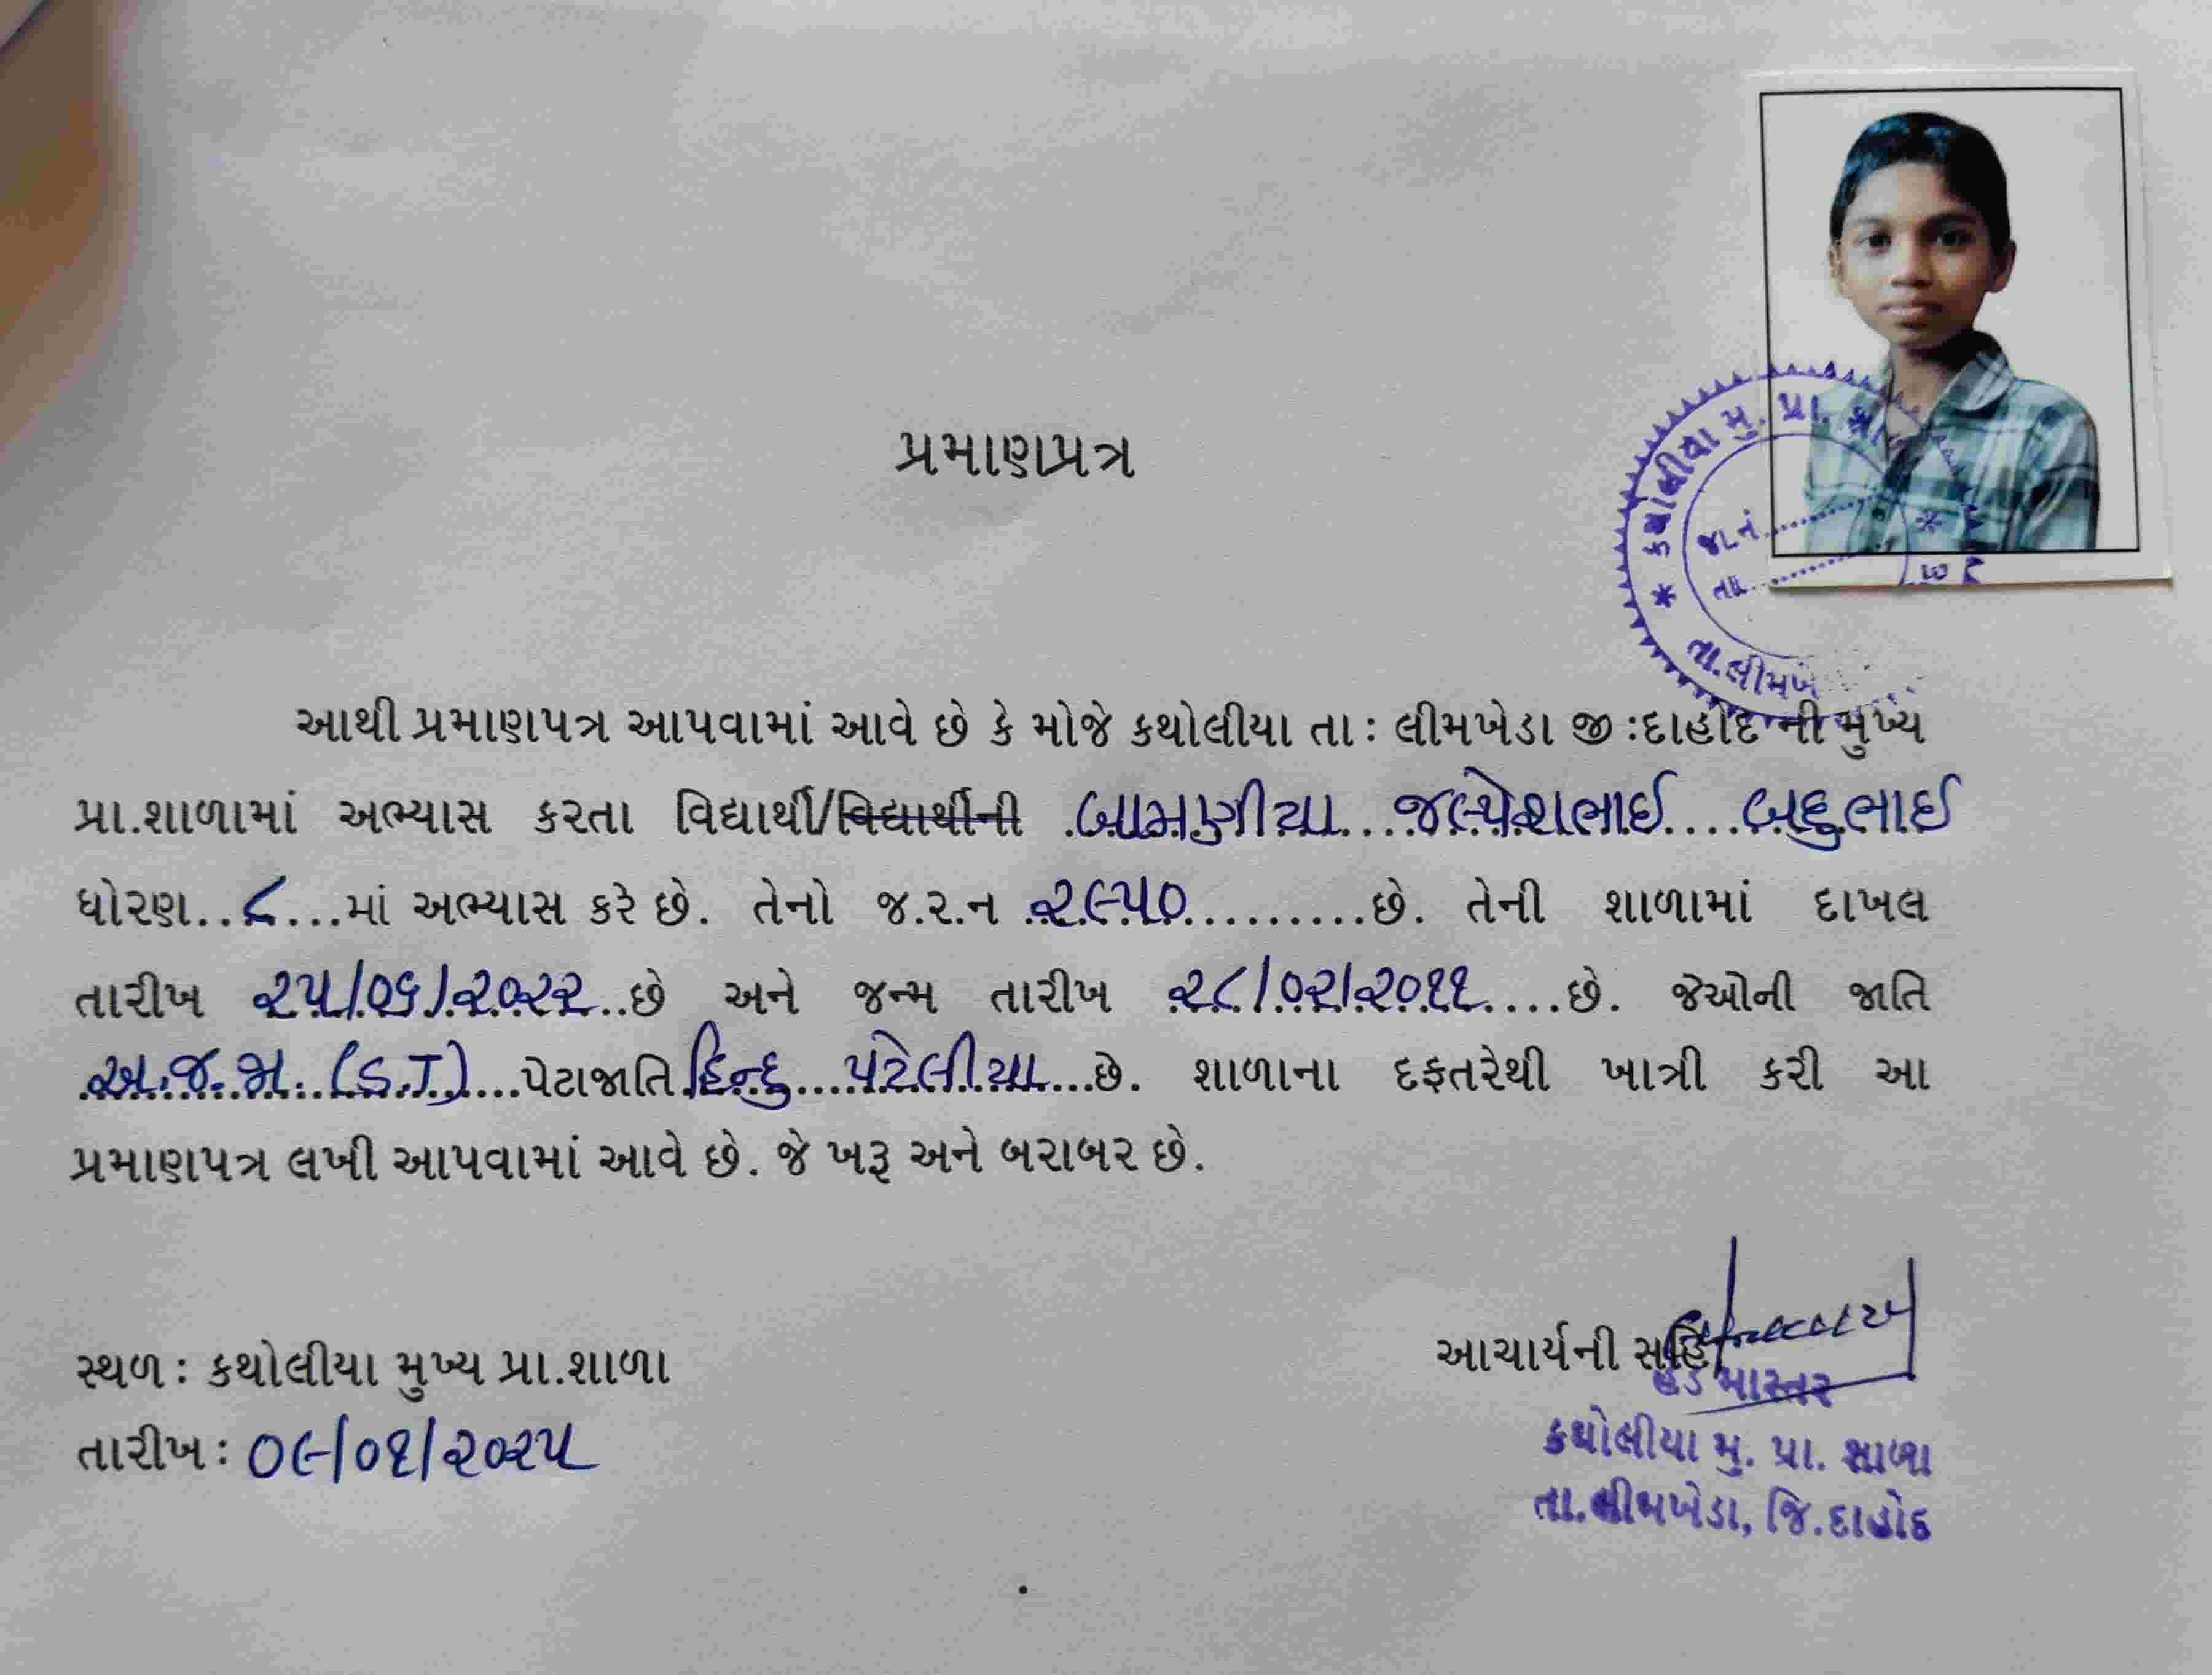 પ્રમાણપ્રત્ર
* કથોલીયા મુ. પ્રા.
જા.નં.
તા.
તા.લીમખે
આથી પ્રમાણપત્ર આપવામાં આવે છે કે મોજે કથોલીયા તા: લીમખેડા જી :દાહોદ ની મુખ્ય
પ્રા.શાળામાં અભ્યાસ કરતા વિદ્યાર્થી/વિદ્યાર્થીની બામણીયા....જલ્પેશભાઈ....બદુભાઈ
ધોરણ..૮...માં અભ્યાસ કરે છે. તેનો જ.ર.ન ૨૯૫૦.........છે. તેની શાળામાં દાખલ
તારીખ ૨૫/૦૬/૨૦૨૨..છે અને જન્મ તારીખ ૨૮/૦૨/૨૦૧૧....છે. જેઓની જાતિ
અ.જ.જા. (S.T)...પેટાજાતિ હિન્દુ....પટેલીયા...છે. શાળાના દફતરેથી ખાત્રી કરી આ
પ્રમાણપત્ર લખી આપવામાં આવે છે. જે ખરૂ અને બરાબર છે.
આચાર્યની સહિ
સ્થળ: કથોલીયા મુખ્ય પ્રા.શાળા
હેડ માસ્તર
તારીખ: ૦૯/૦૧/૨૦૨૫
કથોલીયા મુ. પ્રા. શાળા
તા.લીમખેડા, જિ.દાહોદ